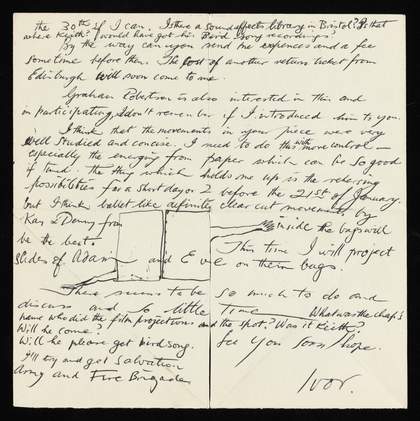 the 30th if I can. Is there a sound effects library in Bristol? Is that
where Keith? would have got his Bird Song recordings?
By the way can you send me expences and a fee
sometime before then. The cost of another return ticket from
Edinburgh will soon come to me.
Graham Robertson is also interested in this and
in participating, I don't remember if I introduced him to you.
I think that the movements in your piece were very
well studied and concise. I need to do this with more control –
especially the emerging from paper which can be so good
if timed. The thing which holds me up is the rehersing
possibilities for a short day or 2 before the 21st of January.
but I think ballet like definite clear cut movements by
Kas & Denny from inside the bags will
be the best. This time I will project
slides of Adam and Eve on them bags.
There seems to be so much to do and
discuss and so little time What was the chap's
name who did the film projections and the spot? Was it Keith?
Will he come? See you soon I hope.
Will he please get bird song.
I'll try and get Salvation
Army and Fire Brigade
Ivor.